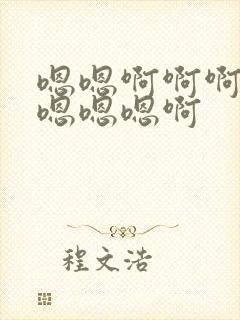 嗯嗯啊啊啊
嗯嗯嗯啊
程文浩